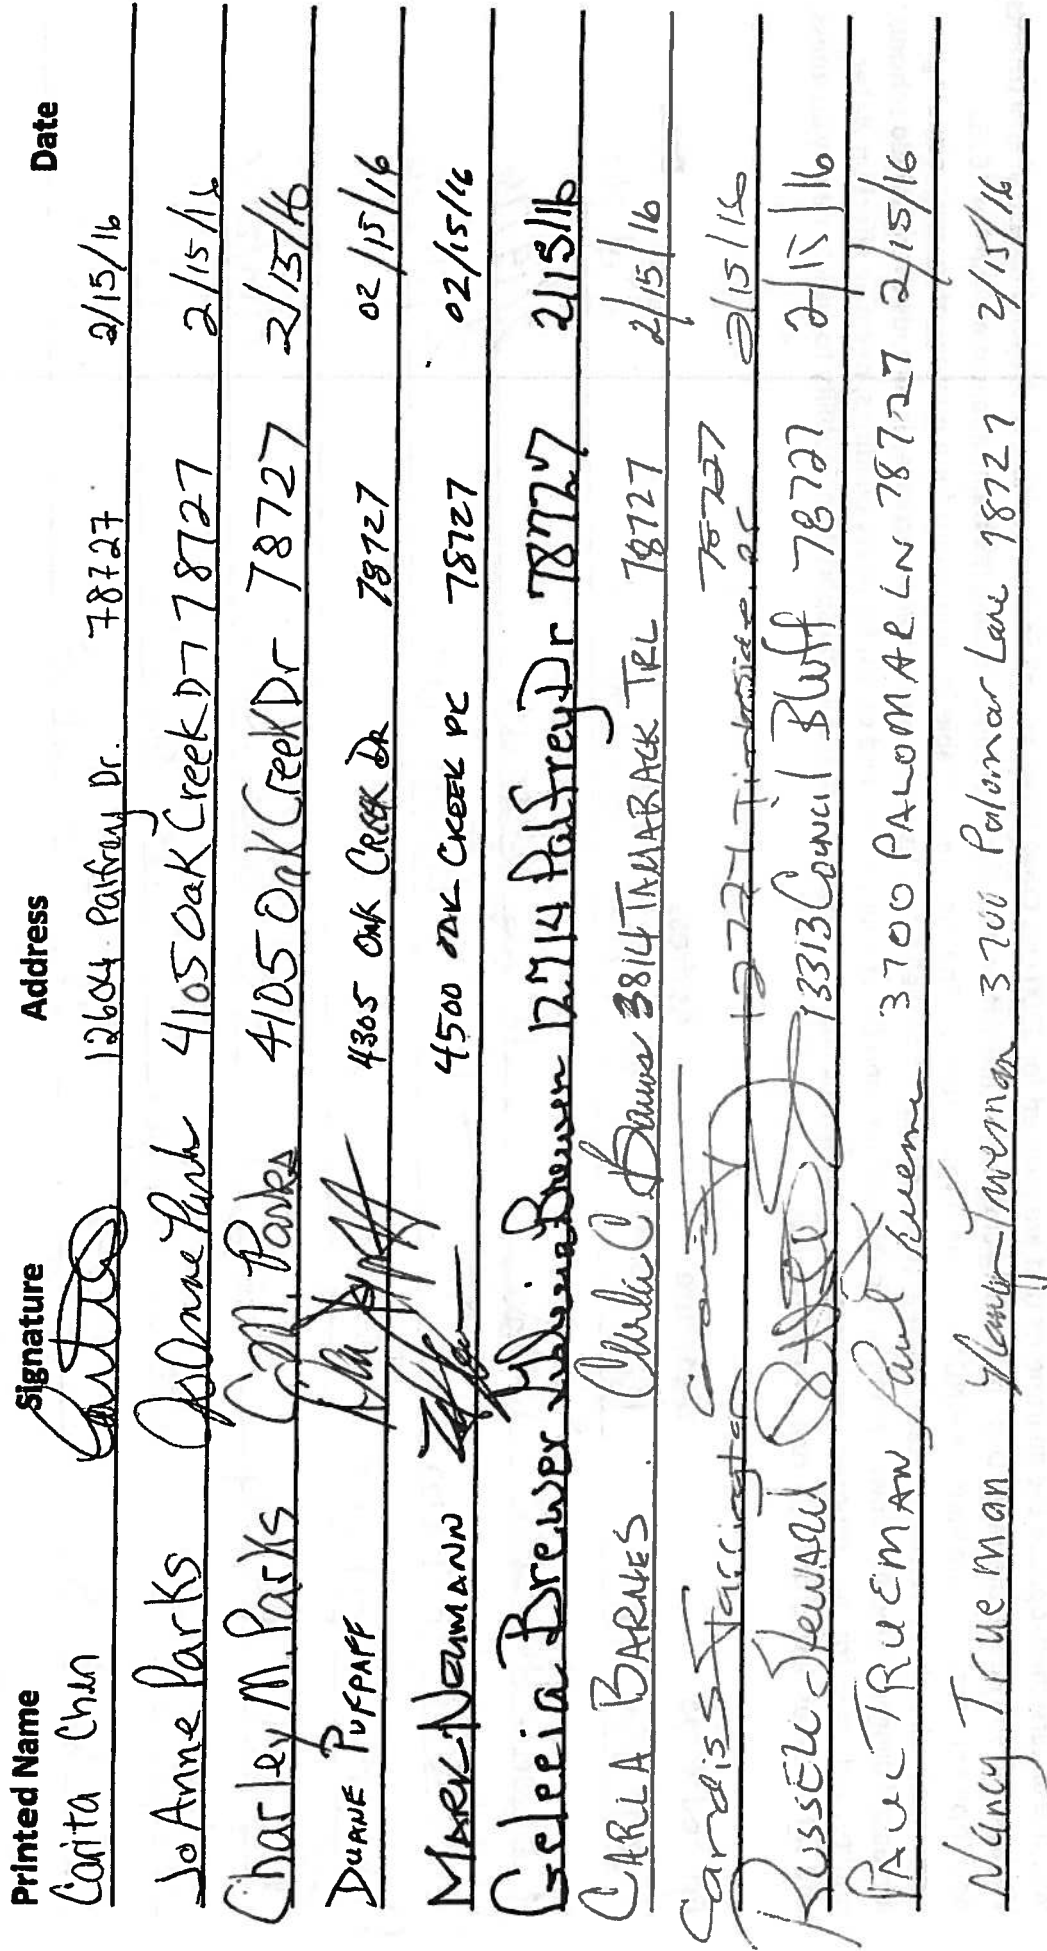 Printed Name Signature Address Date
Carita Chen 12604 Palfrey Dr. 78727 2/15/16
JoAnne Parks JoAnne Parks 4105 Oak Creek Dr 78727 2/15/16
Charley M. Parks C. M. Parks 4105 Oak Creek Dr 78727 2/15/16
DUANE PUFPAFF 4305 OAK CREEK DR 78727 02/15/16
MARK NEUMANN 4500 OAK CREEK 78727 02/15/16
Brewer 12714 Palfrey Dr 78727 2/15/16
CARLA BARNES Carla C Barnes 3814 TAMARACK TRL 78727 2/15/16
Farrington 78727 2/15/16
RUSSELL STEWARD 13313 Council Bluff 78727 2/15/16
PAUL TRUEMAN Paul Trueman 3700 PALOMAR LN 78727 2/15/16
Nancy Trueman Nancy Trueman 3700 Palomar Lane 78727 2/15/16